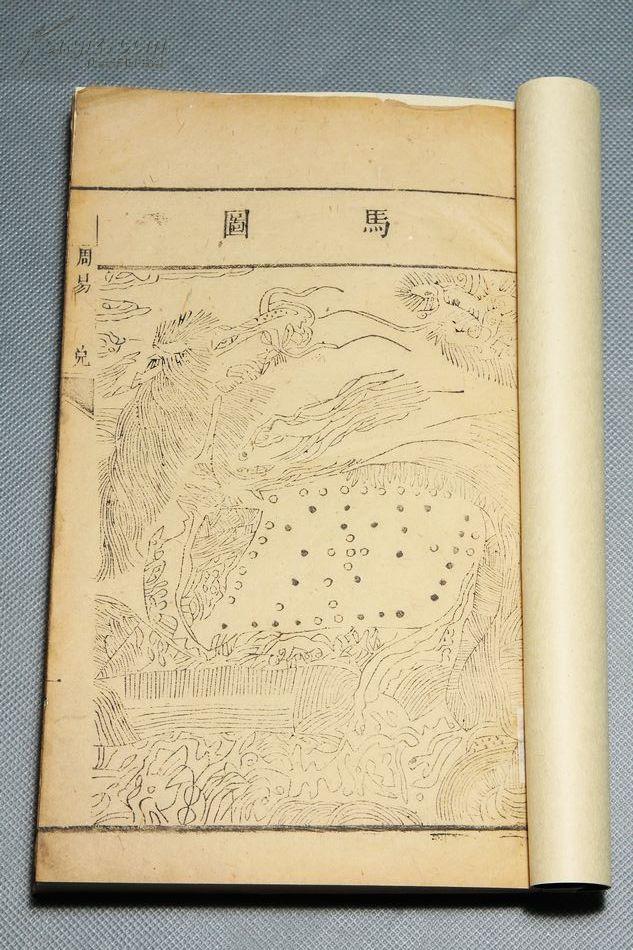 馬圖
周易 兌